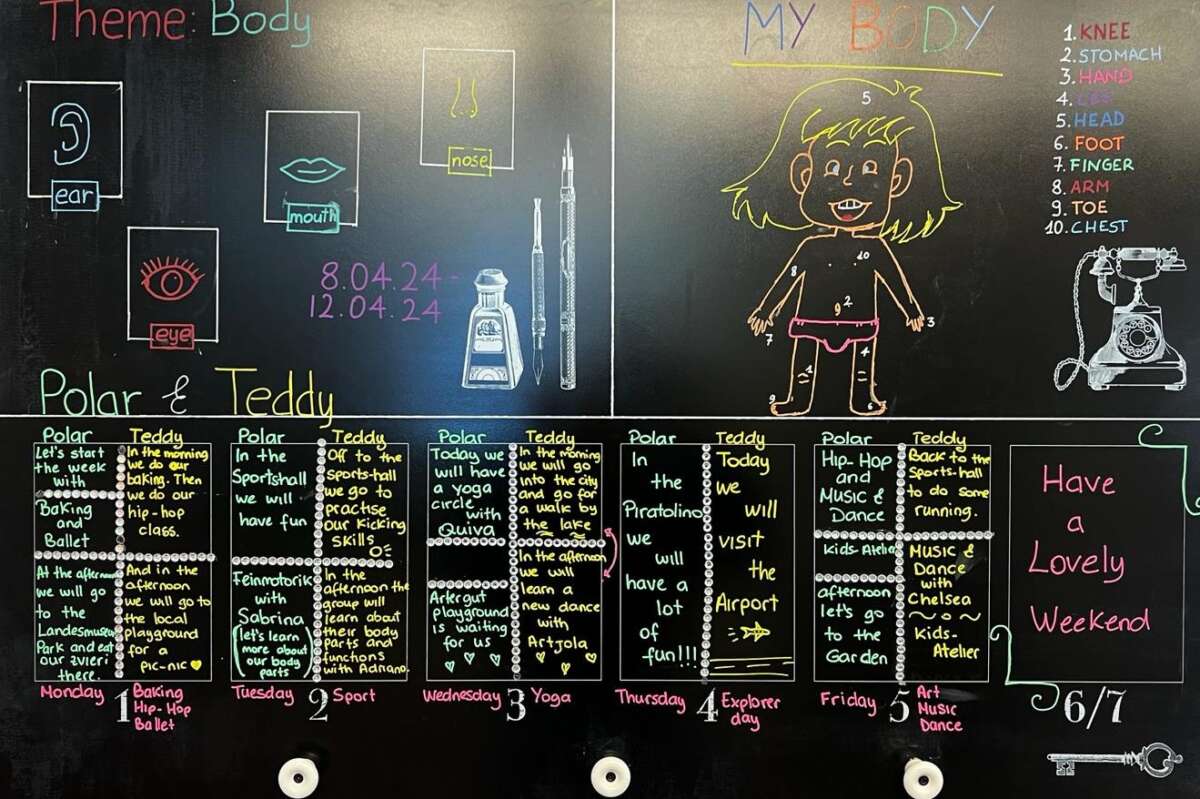 Theme: Body
ear
mouth
nose
eye
8.04.24 -
12.04.24
MY BODY
1. KNEE
2. STOMACH
3. HAND
4. LEG
5. HEAD
6. FOOT
7. FINGER
8. ARM
9. TOE
10. CHEST
5
8
10
2
9
3
7
4
1
9
6
Polar & Teddy
Polar
Let's start
the week
with
Baking
and
Ballet
At the afternoon
we will go
to the
Landesmuseum
Park and eat
our zvieri
there.
Teddy
In the morning
we do our
baking. Then
we do our
hip-hop
class.
And in the
afternoon
we will go to
the local
playground
for a
pic-nic
Monday 1 Baking
Hip-Hop
Ballet
Polar
In the
Sportshall
we will
have fun
Feinmotorik
with
Sabrina
(let's learn
more about
our body
parts)
Teddy
Off to the
sports-hall
we go to
practise
our kicking
skills
In the
afternoon the
group will
learn about
their body
parts and
functions
with Adriano.
Tuesday 2 Sport
Polar
Today we
will have
a yoga
circle
with
Quiva
Artergut
playground
is waiting
for us
Teddy
In the morning
we will go
into the city
and go for
a walk by
the lake
In the afternoon
we will
learn a
new dance
with
Artjola
Wednesday 3 Yoga
Polar
In
the
Piratolino
we
will
have a
lot
of
fun!!!
Teddy
Today
we
will
visit
the
Airport
Thursday 4 Explorer
day
Polar
Hip-Hop
and
Music &
Dance
Kids-Atelier
afternoon
let's go
to the
Garden
Teddy
Back to the
sports-hall
to do some
running.
Music &
Dance
with
Chelsea
Kids-
Atelier
Friday 5 Art
Music
Dance
Have
a
Lovely
Weekend
6/7